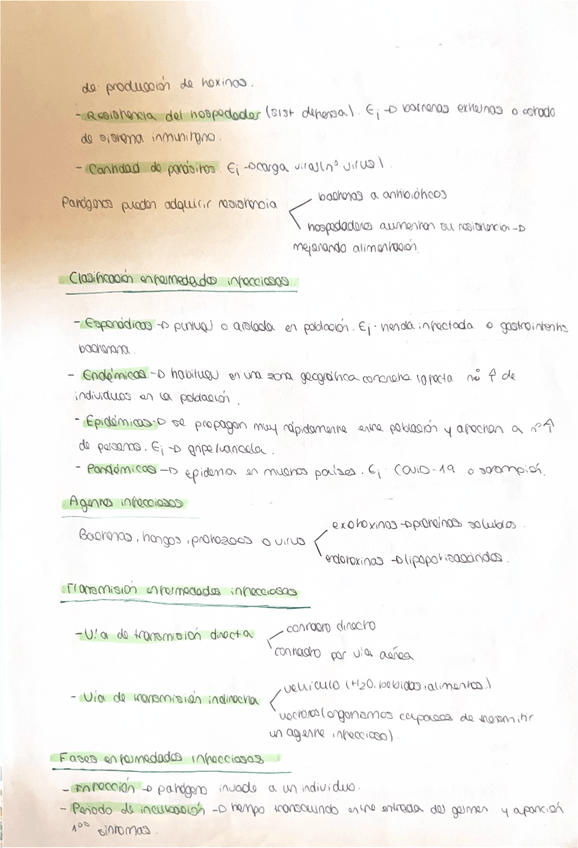 de producción de toxinas.
- Resistencia del hospedador (sist defensa). Ej → barreras externas o estado
de sistema inmunitario.
- Cantidad de parásitos. Ej → carga viral (nº virus).
Patógenos pueden adquirir resistencia
bacterias a antibióticos
hospedadores aumentan su resistencia →
mejorando alimentación.
Clasificación enfermedades infecciosas
- Esporádicas → puntual o aislada en población. Ej. herida infectada o gastroenteritis
bacteriana.
- Endémicas → habitual en una zona geográfica concreta (afecta nº ↑ de
individuos en la población.
- Epidémicas → se propagan muy rápidamente entre población y afectan a nº ↑
de personas. Ej → gripe/varicela.
- Pandémicas → epidemia en muchos países. Ej COVID-19 o sarampión.
Agentes infecciosos
Bacterias, hongos, protozoos o virus
exotoxinas → proteínas solubles.
endotoxinas → lipopolisacáridos.
Transmisión enfermedades infecciosas
- Vía de transmisión directa
contacto directo
contacto por vía aérea
- Vía de transmisión indirecta
vehículo (H2O, bebidas, alimentos)
vectores (organismos capaces de transmitir
un agente infeccioso).
Fases enfermedades infecciosas
- Infección → patógeno invade a un individuo.
- Periodo de incubación → tiempo transcurrido entre entrada del germen y aparición
1ºs síntomas.